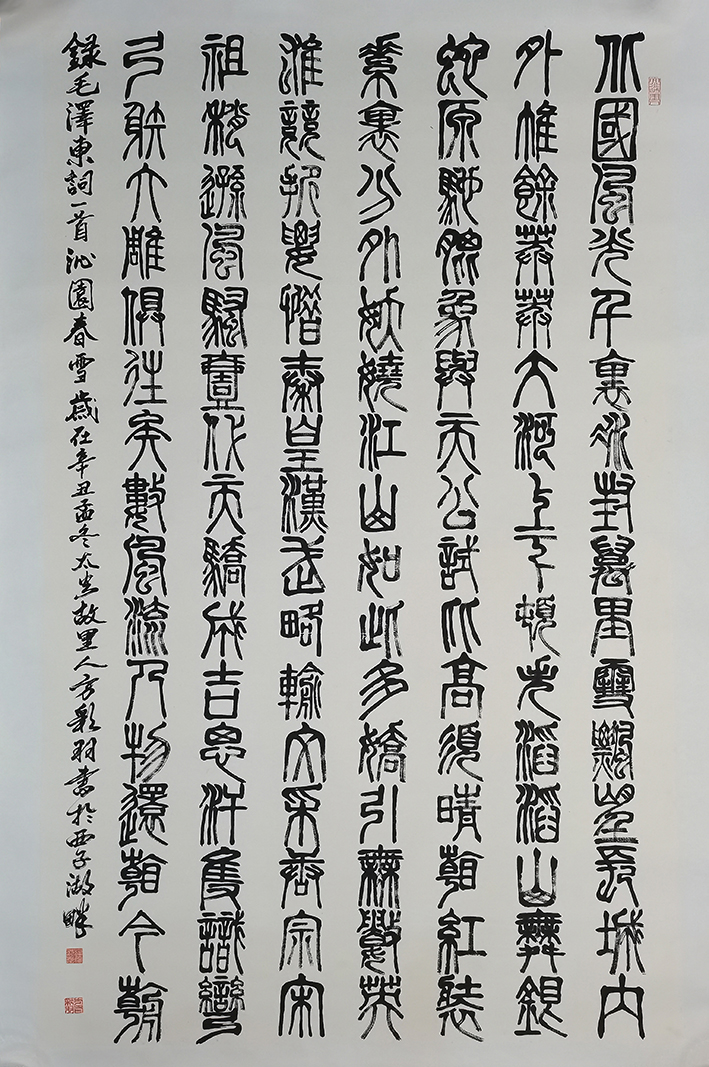 北國風光千里冰封萬里雪飄望長城內
外惟餘莽莽大河上下頓失滔滔山舞銀
蛇原馳臘象與天公試比高須晴朝紅裝
素裹分外妖嬈江山如此多嬌引無數英
雄競折腰惜秦皇漢武略輸文采唐宗宋
祖稍遜風騷壹代天驕成吉思汗隻識彎
弓射大雕俱往矣數風流人物還朝今朝
錄毛澤東詞一首沁園春雪歲在辛丑孟冬太公故里人方彩羽書於西子湖畔